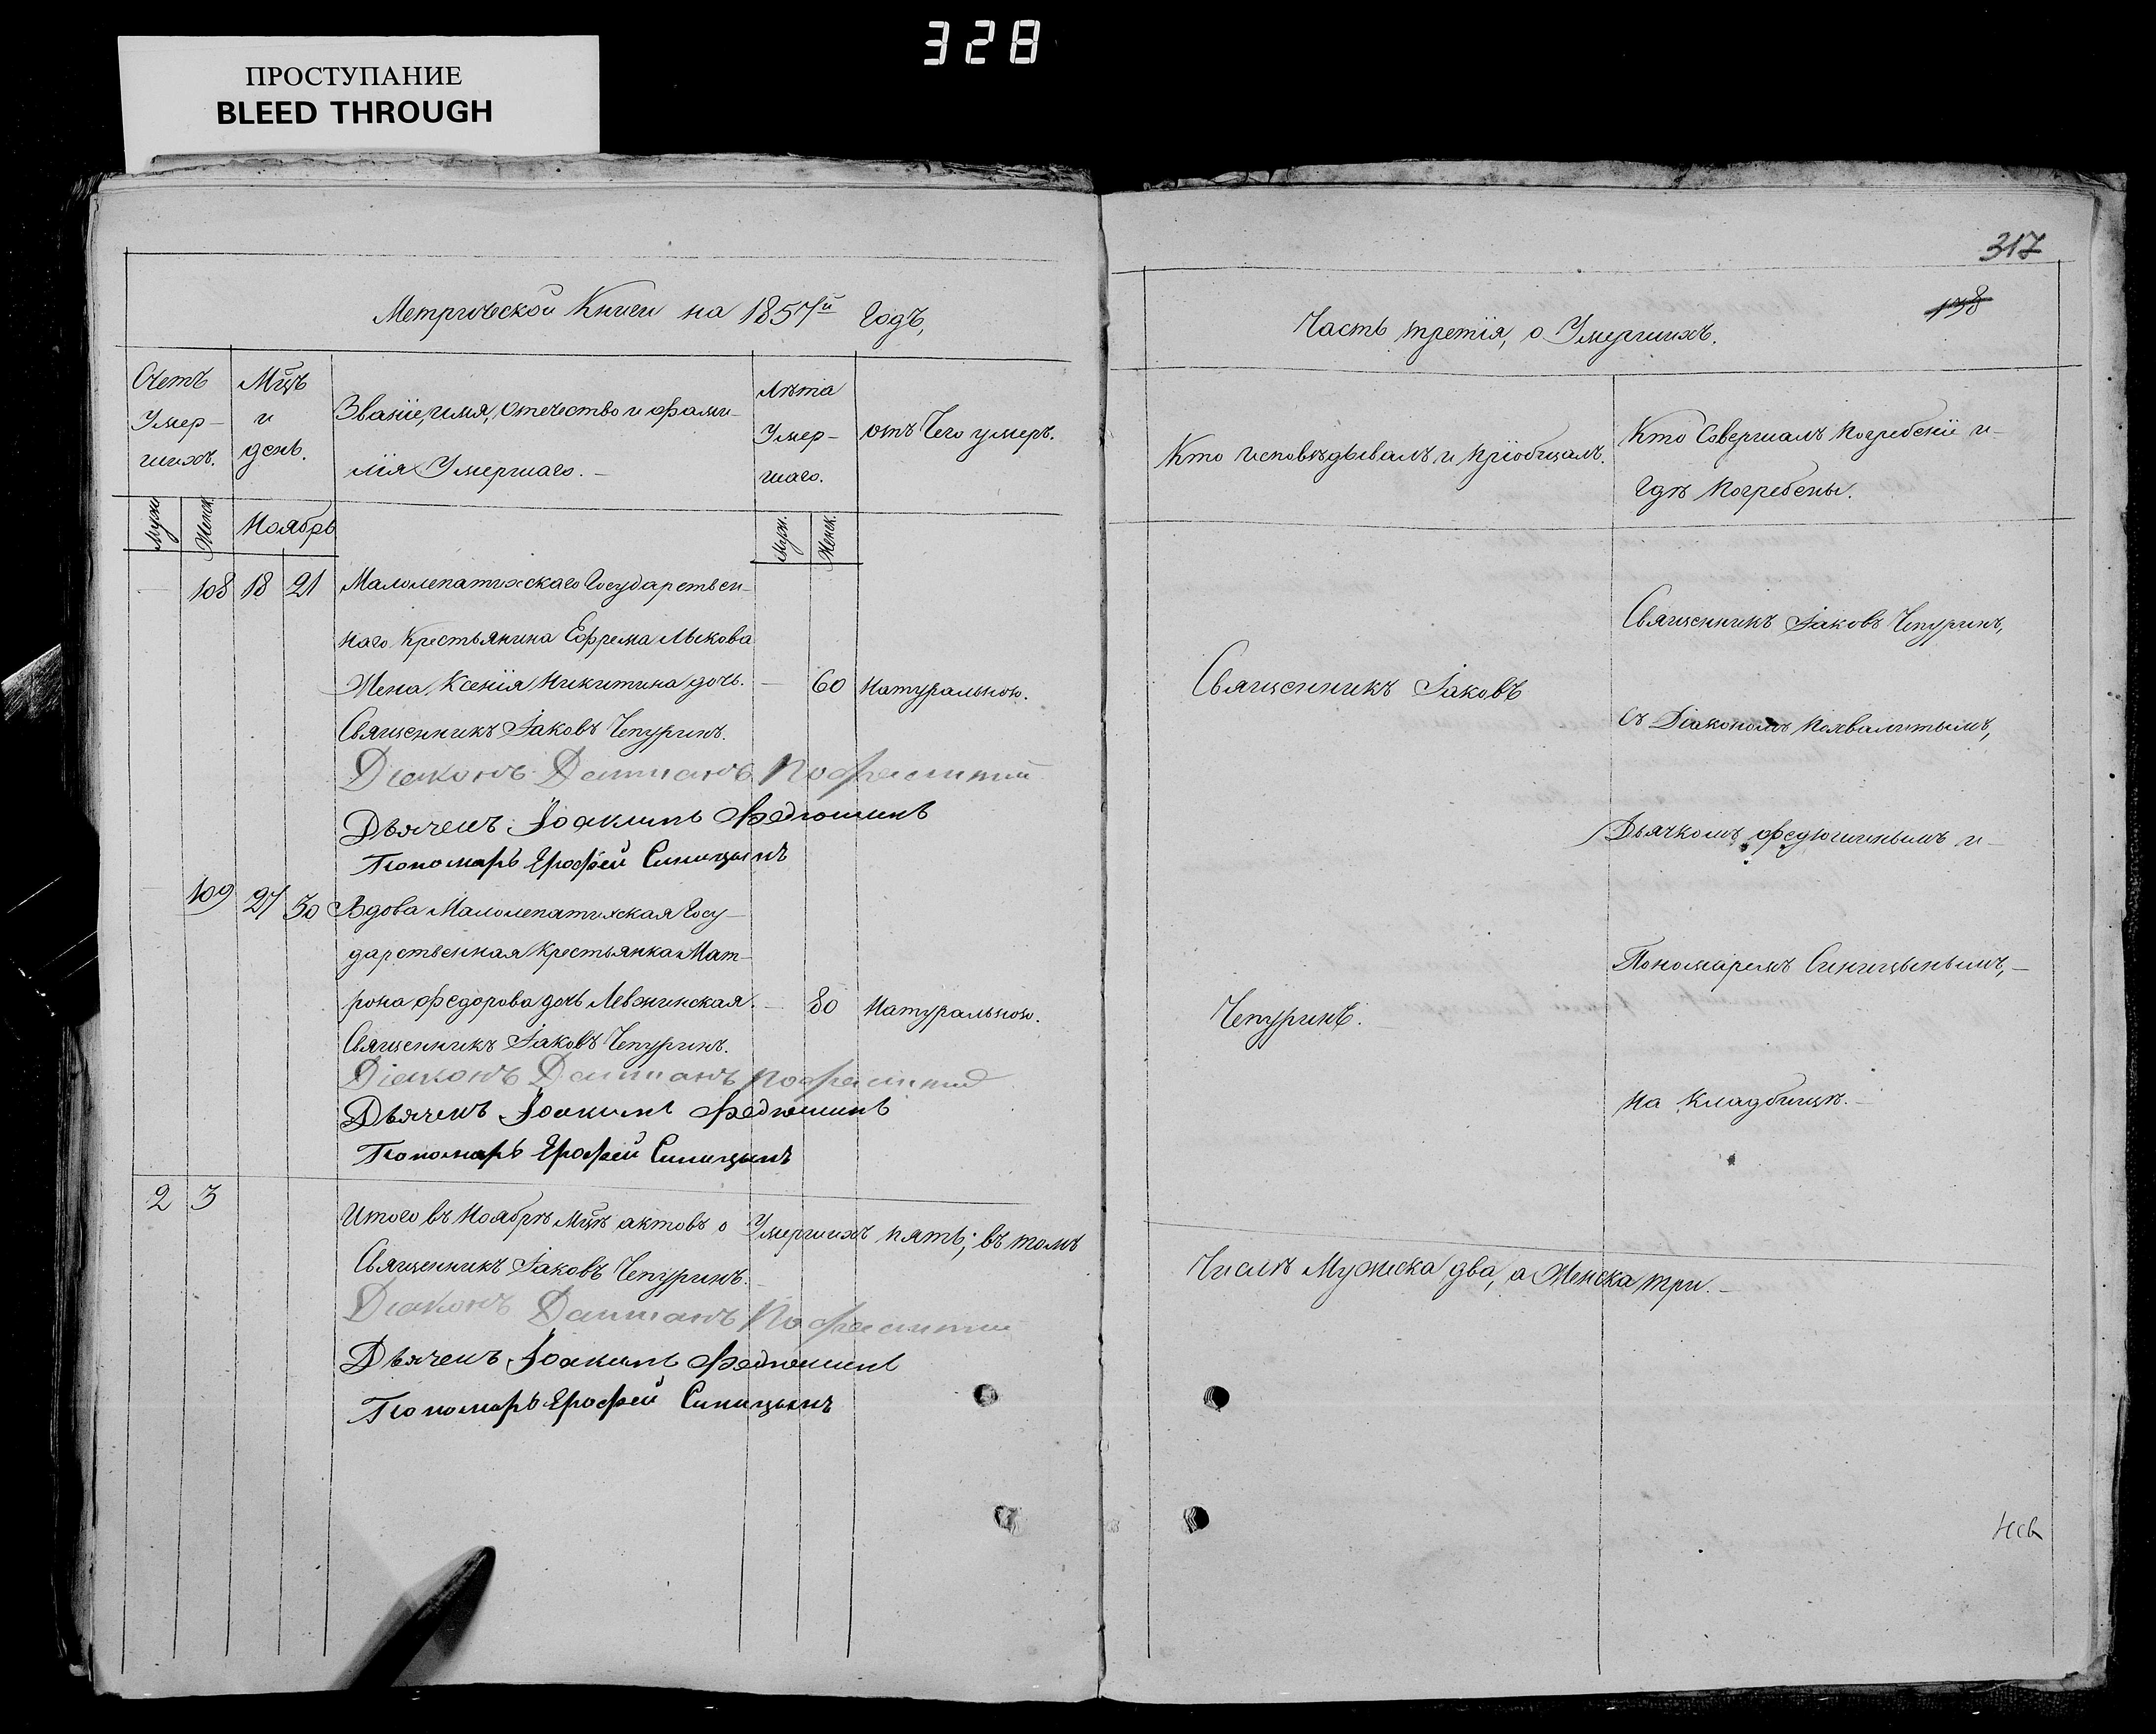 328
ПРОСТУПАНИЕ
BLEED THROUGH
Метрической Книги на 1857й Годъ,
Счетъ Умер-шихъ.
Мцъ и день.
Званіе, имя, отечество и фами-
лія Умершаго. –
Лѣта Умер-шаго.
отъ Чего умеръ.
муж
Женк.
Ноябрь
муж.
Женск.
– 108 18 21 Малолепатихскаго Государствен-
наго Крестьянина Ефрема Лыкова
Жена, Ксенія Никитина дочь. – 60 Натуральною.
Священникъ Іаковъ Чепуринъ.
Діаконъ Даміанъ
Дьячекъ Іоакимъ Федюшинъ
Пономарь Ерофей Синицынъ
– 109 27 30 Вдова Малолепатихская Госу-
дарственная Крестьянка Мат-
рона Федорова дочь Левжинская. – 80 Натуральною.
Священникъ Іаковъ Чепуринъ.
Діаконъ Даміанъ
Дьячекъ Іоакимъ Федюшинъ
Пономарь Ерофей Синицынъ
2 3
Итого въ Ноябрѣ Мцѣ актовъ о Умершихъ пять; въ томъ
Священникъ Іаковъ Чепуринъ. –
Діаконъ Даміанъ
Дьячекъ Іоакимъ Федюшинъ
Пономарь Ерофей Синицынъ
317
138
Часть третія, о Умершихъ.
Кто исповѣдывалъ и пріобщалъ.
Кто Совершалъ погребеніи и
Гдѣ погребены.
Священникъ Іаковъ
Чепуринъ.
Священникъ Іаковъ Чепуринъ,
съ Діакономъ Похвалитымъ,
Дьячкомъ Федюшинымъ и
Пономаремъ Синицынымъ, –
на Кладбищѣ. –
Числѣ Мужеска два, а Женска три. –